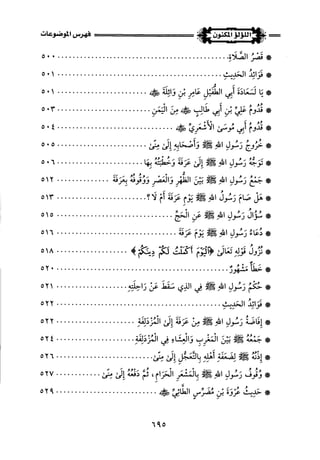 اللؤلؤ المكنون
فهرس الموضوعات
* قَصْرُ الصَّلَاةِ ..... ٥٠٠
* فَوَائِدُ الْحَدِيثِ ..... ٥٠١
* يَا لَسَعَادَةِ أَبِي الطُّفَيْلِ عَامِرِ بْنِ وَاثِلَةَ ﷺ ..... ٥٠١
* قُدُومُ عَلِيِّ بْنِ أَبِي طَالِبٍ ﷺ مِنَ الْيَمَنِ ..... ٥٠٣
* قُدُومُ أَبِي مُوسَى الْأَشْعَرِيِّ ﷺ ..... ٥٠٤
* خُرُوجُ رَسُولِ اللهِ ﷺ وَأَصْحَابِهِ إِلَى مِنًى ..... ٥٠٥
* تَوَجُّهُ رَسُولِ اللهِ ﷺ إِلَى عَرَفَةَ وَخُطْبَتُهُ بِهَا ..... ٥٠٦
* جَمْعُ رَسُولِ اللهِ ﷺ بَيْنَ الظُّهْرِ وَالْعَصْرِ وَوُقُوفُهُ بِعَرَفَةَ ..... ٥١٢
* هَلْ صَامَ رَسُولُ اللهِ ﷺ يَوْمَ عَرَفَةَ أَمْ لَا؟ ..... ٥١٣
* سُؤَالُ رَسُولِ اللهِ ﷺ عَنِ الْحَجِّ ..... ٥١٥
* دُعَاءُ رَسُولِ اللهِ ﷺ يَوْمَ عَرَفَةَ ..... ٥١٦
* نُزُولُ قَوْلِهِ تَعَالَى ﴿الْيَوْمَ أَكْمَلْتُ لَكُمْ دِينَكُمْ﴾ ..... ٥١٨
* خَطَأٌ مَشْهُورٌ ..... ٥٢٠
* حُكْمُ رَسُولِ اللهِ ﷺ فِي الذِي سَقَطَ عَنْ رَاحِلَتِهِ ..... ٥٢١
* فَوَائِدُ الْحَدِيثِ ..... ٥٢٢
* إِفَاضَةُ رَسُولِ اللهِ ﷺ مِنْ عَرَفَةَ إِلَى الْمُزْدَلِفَةِ ..... ٥٢٢
* جَمْعُهُ ﷺ بَيْنَ الْمَغْرِبِ وَالْعِشَاءِ فِي الْمُزْدَلِفَةِ ..... ٥٢٤
* إِذْنُهُ ﷺ لِضَعَفَةِ أَهْلِهِ بِالتَّعَجُّلِ إِلَى مِنًى ..... ٥٢٦
* وُقُوفُ رَسُولِ اللهِ ﷺ بِالْمَشْعَرِ الْحَرَامِ، ثُمَّ دَفْعُهُ إِلَى مِنًى ..... ٥٢٧
* حَدِيثُ عُرْوَةَ بْنِ مُضَرِّسٍ الطَّائِيِّ ..... ٥٢٩
٦٩٥